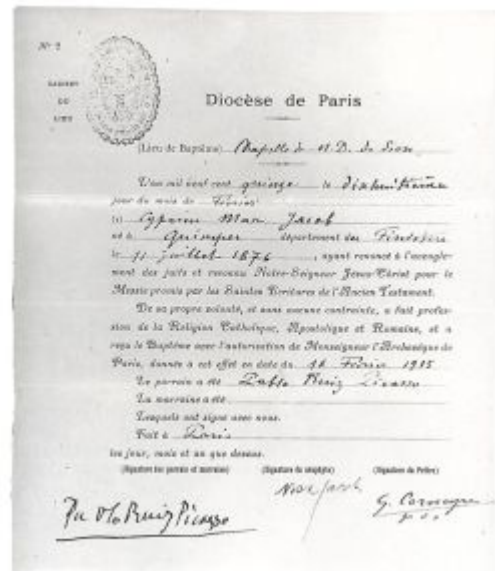 Nº 2
Diocèse de Paris
(Lieu de Baptême) Chapelle de N. D. de Sion
L'an mil neuf cent quinze le dixhuitième
jour du mois de Février
Cyprien Max Jacob
né à Quimper département du Finistère
le 11 juillet 1876, ayant renoncé à l'aveugle-
ment des juifs et reconnu Notre-Seigneur Jésus-Christ pour le
Messie promis par les Saintes Ecritures de l'Ancien Testament.
De sa propre volonté, et sans aucune contrainte, a fait profes-
sion de la Religion Catholique, Apostolique et Romaine, et a
reçu le Baptême avec l'autorisation de Monseigneur l'Archevêque de
Paris, donnée à cet effet en date du Février 1915
Le parrain a été Pablo Ruiz Picasso
La marraine a été
Lesquels ont signé avec nous.
Fait à Paris
les jour, mois et an que dessus.
(Signature des parrain et marraine) (Signature du néophyte) (Signature du Prêtre)
Pablo Ruiz Picasso Max Jacob G.